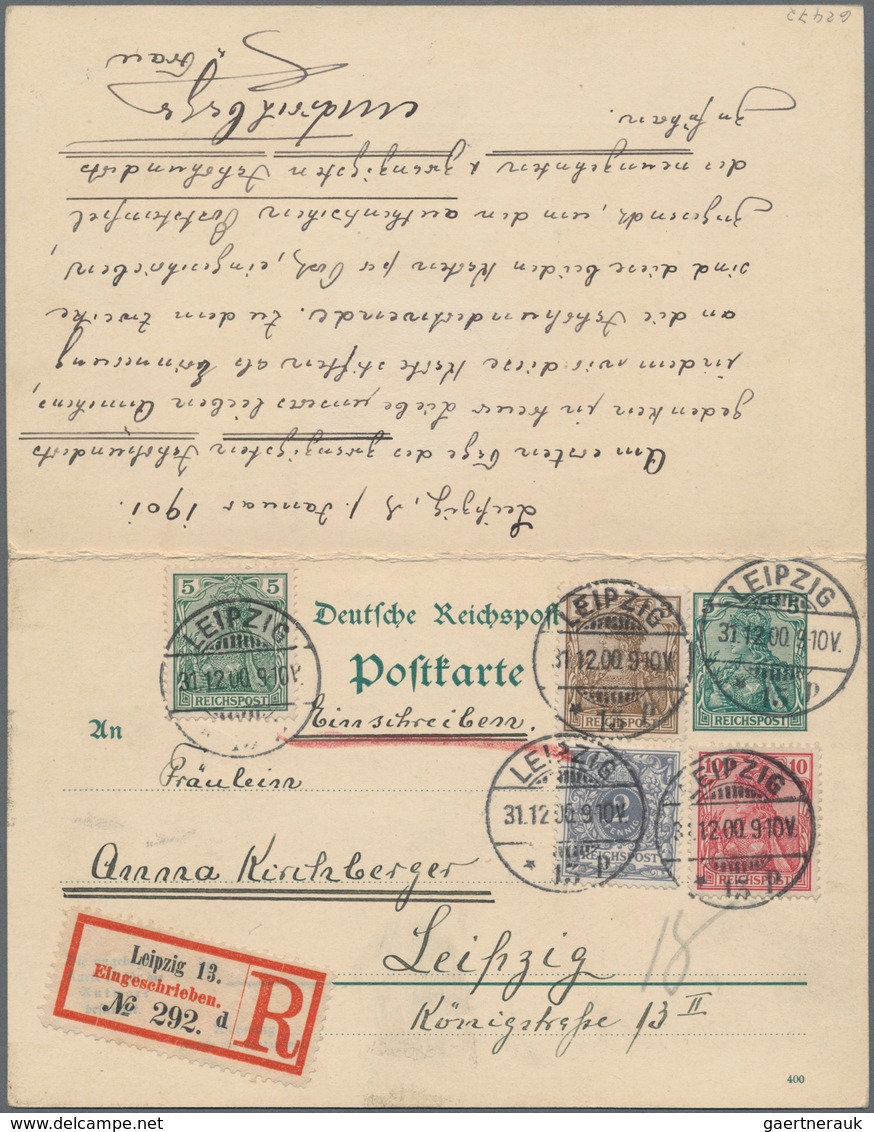 Leipzig, d. 1. Januar 1901.
Am ersten Tage des zwanzigsten Jahrhunderts
gedenken in treuer Liebe unseres lieben Annchens,
indem wir diese Karte stiften als Erinnerung
an die Jahrhundertwende. Zu dem Zwecke
sind diese beiden Karten per Post, eingeschrieben,
zugesandt, um den authentischen Poststempel
des neunzehnten & zwanzigsten Jahrhunderts
zu haben.
u. Frau
62473
5 5
REICHSPOST
LEIPZIG
31.12.00.9-10V.
Deutsche Reichspost
Postkarte
3
REICHSPOST
LEIPZIG
31.12.00.9-10V.
* 13 p
5 5
REICHSPOST
LEIPZIG
31.12.00.9-10V.
* 13 p
Einschreiben.
An
Fräulein
2
PFENNIG
REICHSPOST
LEIPZIG
31.12.00.9-10V.
* 13 p
10 10
REICHSPOST
LEIPZIG
31.12.00.9-10V.
* 13 p
Anna Kirchberger
Leipzig
Königstraße 13 II
Leipzig 13.
Eingeschrieben.
№ 292. d
R
400
delcampe.net
gaertnerauk